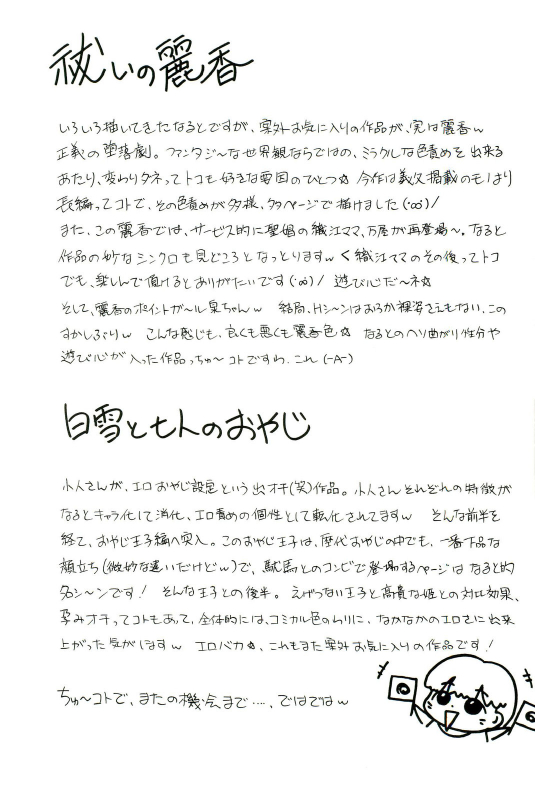 祓いの麗香
いろいろ描いてきたなるとですが、案外お気に入りの作品が、実は麗香w
正義の堕落劇。ファンタジ～な世界観ならではの、ミラクルな色責めを出来る
あたり、変わりタネってトコも好きな要因のひとつ☆ 今作は義父掲載のもはり
長編ってコトで、その色責めが多様、多ページで描けました(・∞)/
また、この麗香では、サービス的に聖娼の織江ママ、万屋が再登場～。なると
作品の妙なシンクロも見どころとなっとりますw く織江ママのその後ってトコ
でも、楽しんで頂けるとありがたいです(・∞)/ 遊び心だ～ネ☆
そして、麗香のポイントガ～ル泉ちゃんw 結局、Hシ～ンはおろか裸姿さえもない、この
すかしぶりw こんな感じも、良くも悪くも麗香色☆ なるとのヘソ曲がり性分や
遊び心が入った作品っちゅ～コトですわ、これ(-A-)
白雪と七人のおやじ
小人さんが、エロおやじ設定という出オチ(笑)作品。小人さんそれぞれの特徴が
なるとキャラ化して消化、エロ責めの個性として転化されてますw そんな前半を
経て、おやじ王子編へ突入。このおやじ王子は、歴代おやじの中でも、一番下品な
顔立ち(微妙な違いだけどw)で、駄馬とのコンビで登場するページはなると的
名シ～ンです! そんな王子との後半。えげつない王子と高貴な姫との対比効果、
孕みオチってコトもあって、全体的には、コミカル色のわりに、なかなかのエロさに出来
上がった気がしますw エロバカ☆、これもまた案外お気に入りの作品です!
ちゅ～コトで、またの機会まで…、ではではw